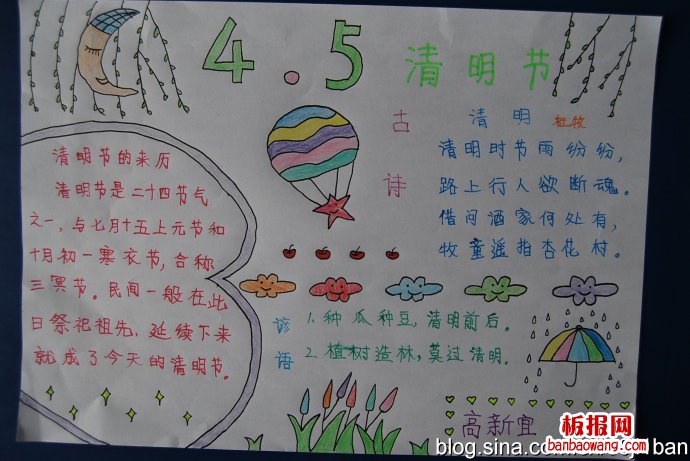 4.5 清明节
清明节的来历
清明节是二十四节气
之一，与七月十五上元节和
十月初一寒衣节，合称
三冥节。民间一般在此
日祭祀祖先，延续下来
就成了今天的清明节。
古诗
清明 杜牧
清明时节雨纷纷，
路上行人欲断魂。
借问酒家何处有，
牧童遥指杏花村。
谚语
1.种瓜种豆，清明前后。
2.植树造林，莫过清明。
高新宜
板报网
banbaowang.com
blog.sina.com